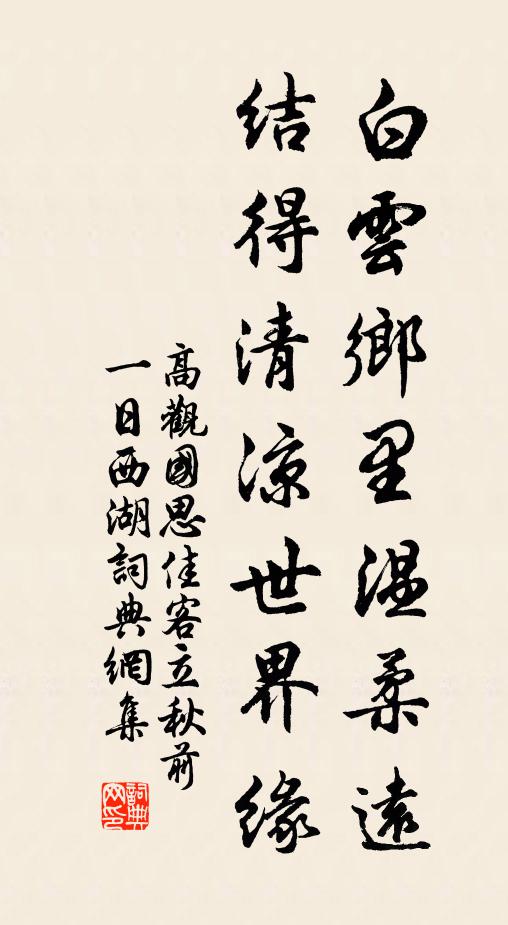 白雲鄉里溫柔遠
結得清涼世界緣
高觀國思佳客立秋前
一日西湖詞典網集
詞典
网印